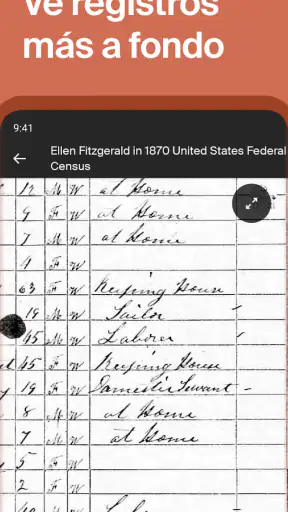 Ve registros
más a fondo
9:41
Ellen Fitzgerald in 1870 United States Federal
Census
12 M W at Home
9 F W at Home
7 M W at Home
4 F W
63 F W Keeping House
18 M W Sailor
45 M W Laborer
45 F W Keeping House
19 F W Domestic Servant
8 M W at Home
7 M W at Home
5 F W
2 F W